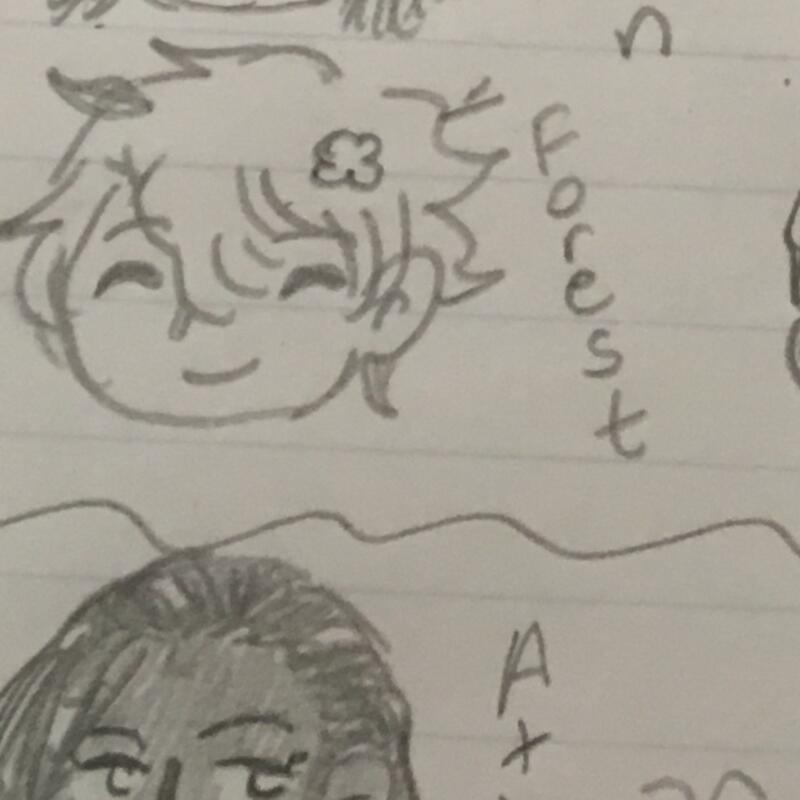 n
Forest
A